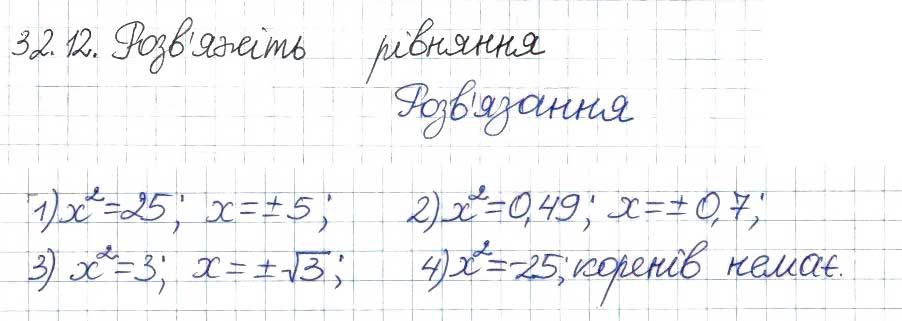 32.12. Розв'яжіть рівняння
Розв'язання
1) x²=25; x=±5; 2) x²=0,49; x=±0,7;
3) x²=3; x=±√3; 4) x²=-25; коренів немає.